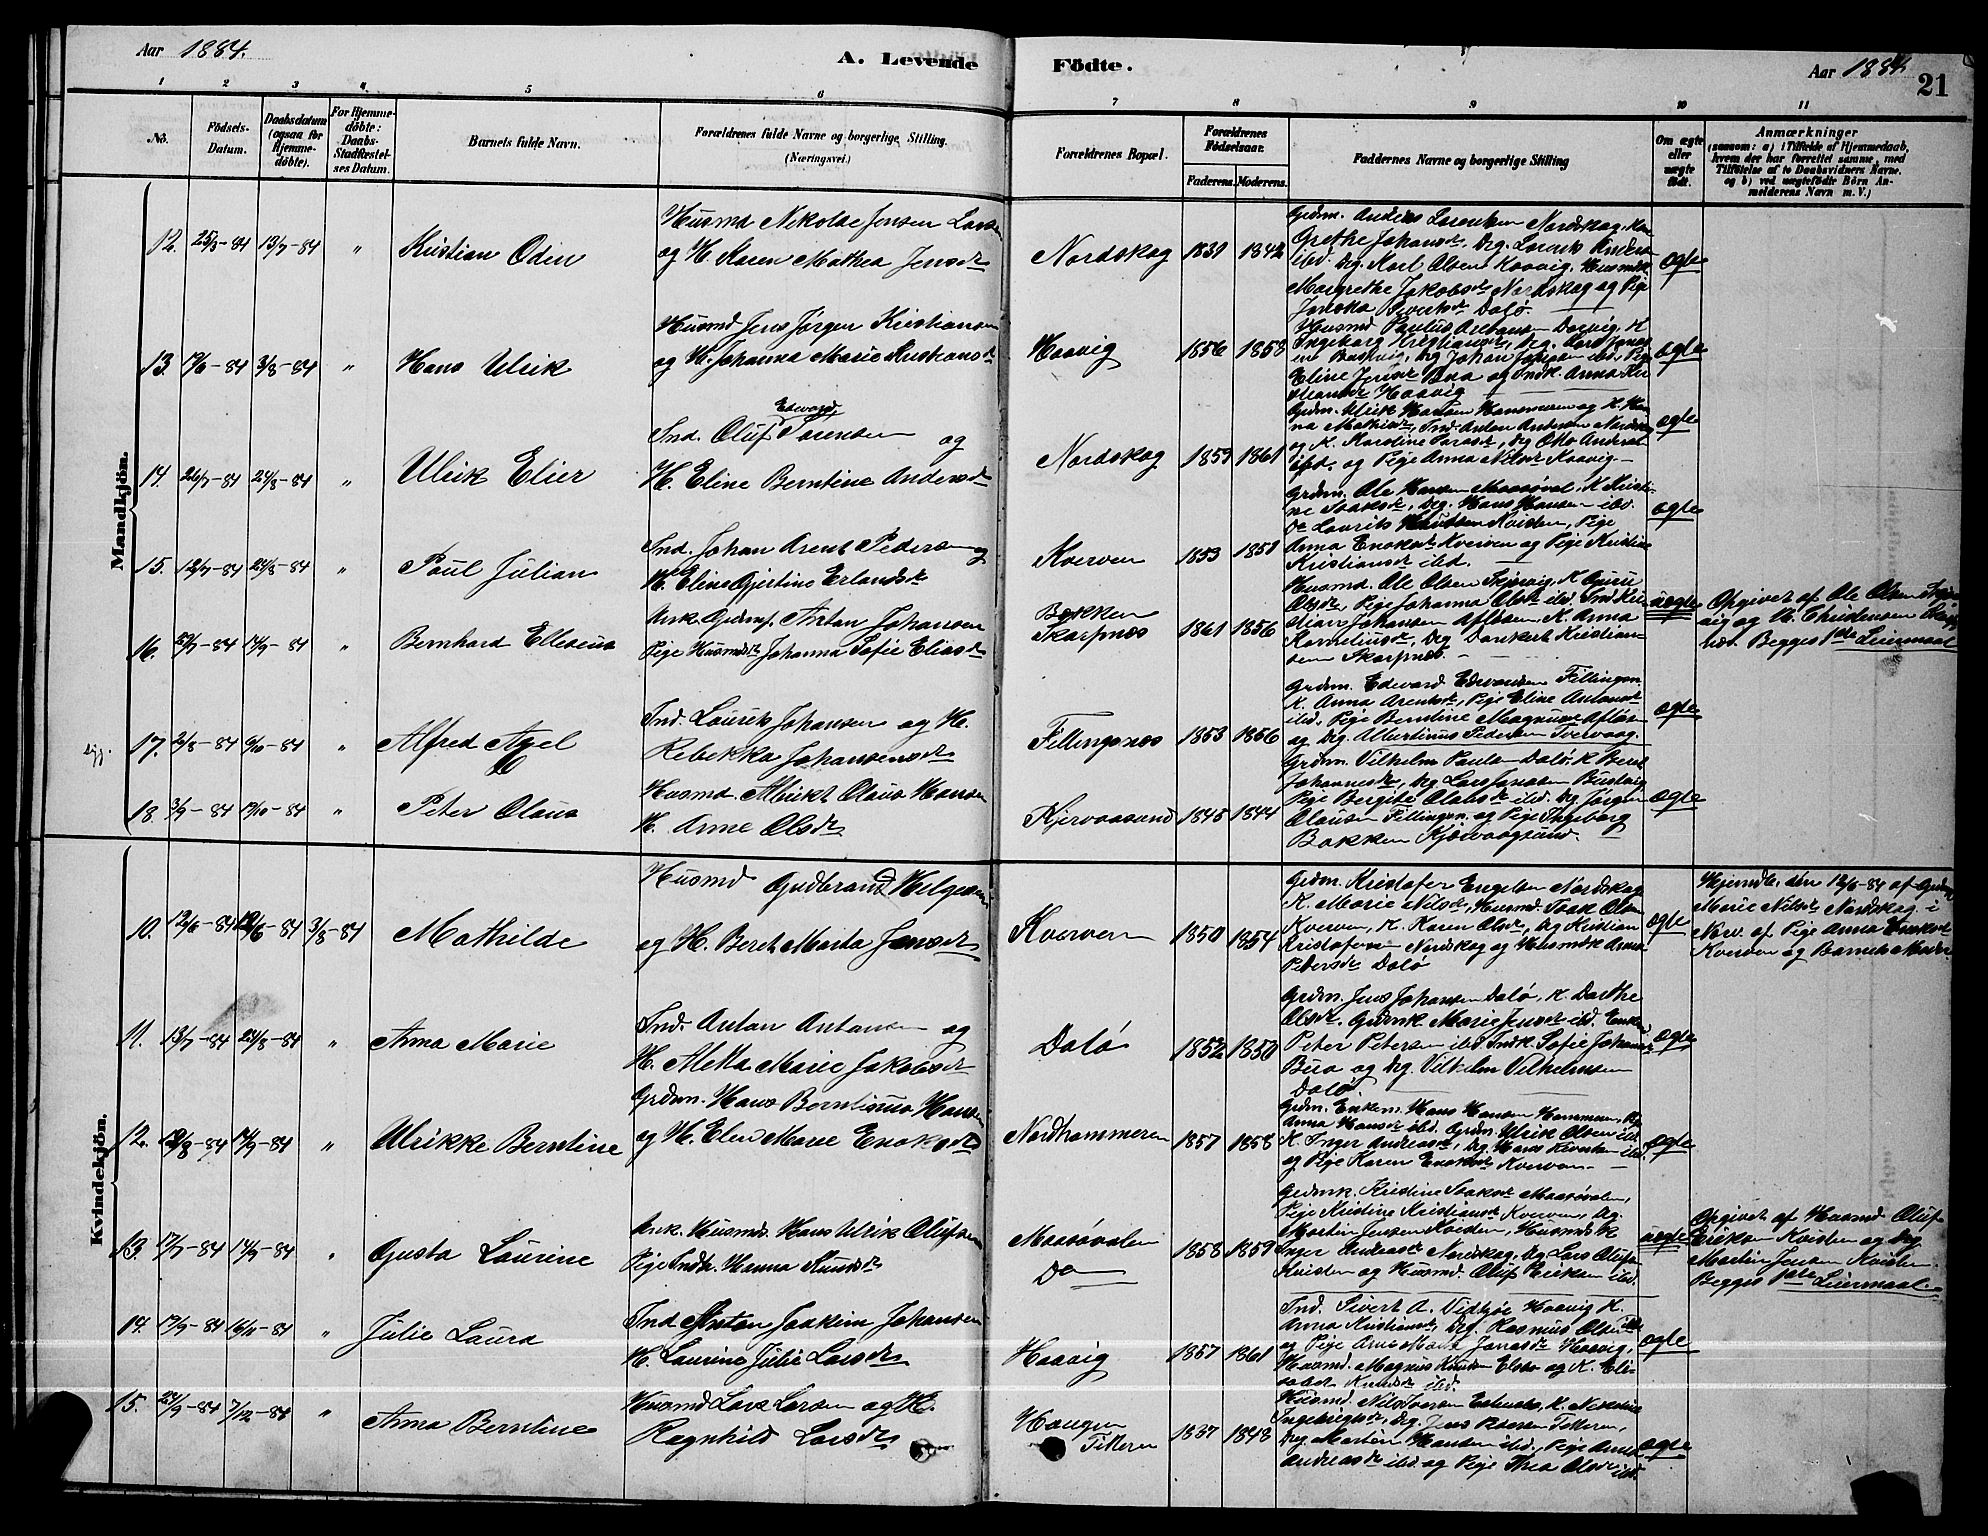 Aar 1884.
A. Levende Födte.
Aar 1884.
21
1 2 3 4 5 6 7 8 9 10 11
No.
Födsels-Datum.
Daabsdatum (ogsaa for Hjemme-döbte).
For Hjemme-döbte: Daabs-Stadfæstel-ses Datum.
Barnets fulde Navn.
Forældrenes fulde Navne og borgerlige Stilling. (Næringsvei.)
Forældrenes Bopæl.
Forældrenes Födselsaar.
Faderens. Moderens.
Faddernes Navne og borgerlige Stilling
Om ægte eller uægte födt.
Anmærkninger
(saasom: a) i Tilfælde af Hjemmedaab,
hvem der har forrettet samme, med
Tilföielse af to Daabsvidners Navne.
og b) ved uægtefödte Börn An-
melderens Navn m. V.)
Mandkjön.
12. 25/5-84 13/7-84 " Kristian Odin
Husmd Nikolai Jensen Larsen
og H. Karen Mathea Jensdr
Nordskog 1831 1842
Grdm. Anders Larentsen Nordskag, Kone
Grethe Johansdr, Drg. Larents Anders
ibd. Drg. Karl Olsen Kaavig, Husmdk
Margrethe Jakobsdr Nordskag og Pige
Dolø.
ægte
13. 3/8-84 " Hans Ulrik
Husmd Jens Jørgen Kristiansen
og H. Johanna Marie
Haavig 1856 1858
Husmd Paulus
Ingeborg Kristiansdr, Drg.
Drg Johan Johansen ibd, Pige
Eline Jensdr Bua og Indk. Anna Kri
stiansdr Haavig
ægte
14. 26/7-84 24/8-84 " Ulrik Elier
Ind. Oluf Edvard Sørensen og
H. Eline Berntine Andersdr
Nordskog 1859 1861
Grdm. Ulrik Hansen Hammeren og K. Han
na Mathisdr, Ind. Anton Andersen Nordskag
og K. Karoline Larsdr, Drg Otto Anders
ibd. og Pige Anna Nilsdr Kaavig.
ægte
15. 12/7-84 24/8-84 " Poul Julian
Ind. Johan Arent Pedersen og
H. Elina Gjertine Erlandsdr
Kverven 1853 1851
Grdm. Ole Hansen Maasøval, K. Kristi-
ne Isaksdr, Drg. Hans Hansen ibd.
Do Laurits Knudsen Kvisten, Pige
Anna Enoksdr Kverven og Pige Kristine
Kristiansdr ibd.
ægte
16. 29/7-84 14/9-84 " Bernhard Elleseus
Ank. Grdmf. Anton Johansen
Pige Husmdd Johanna Sofie Eliasdr
Bakken
Skarpnes 1861 1856
Husmd. Ole Olsen Skjervig, K. Guru
Olsdr, Pige Johanna Olsdr ibd. Ind. Kri
stian Johansen Afløsen K. Anna
Korneliusdr, Drg Dankert Kristian-
sen Skarpnes.
uægte
Opgivet af Ole Olsen Skjer
vig og H. Christensen Skarp
nes. Begges 1ste Leiermaal
17. 2/8-84 " Alfred Axel
Ind. Laurits Johansen og H.
Rebekka Johansensdr
Fillingsnes 1853 1856
Grdm. Edevard Edvardsen Fillingsn.
K. Anna Arentsdr, Pige Eline Antonsdr
ibd. Pige Berntine Magnusdr Afløs
og Drg. Albertinus Pedersen Tvervaag.
ægte
18. 3/9-84 " Peter Olaus
Husmd. Ulrikt Olaus Hansen
H. Anne Olsdr
Kjervaasund 1845 1844
Grdm. Vilhelm Paulsen Dolø, K. Beret
Johannesdr, Drg Lars Jonsen Bustvig
Pige Bergite Olsdr ibd. Drg. Jørgen
Olausen Fillingsn. og Pige Ingeborg
Bakken Kjervaagsund.
ægte
Kvindekjön.
10. 12/6-84 12/6-84 3/8-84 Mathilde
Husmd Gudbrand Helgesen
og H. Beret Marta Jonsdr
Kverven 1850 1854
Grdm. Kristofer Engelsen Nordskag
K. Marie Nilsdr, Husmd. Isak Olsen
Kverven, K. Karen Olsdr, Drg Kristian
Kristofersen Nordskag og Husmdk Anna
Petersdr Dolø
ægte
Hjemdb. den 12/6-84 af Grdmk
Marie Nilsdr Nordskag i
Nærv. af Pige Anna Enoksdr
Kverven og Barnets Moder.
11. 13/7-84 24/8-84 " Anna Marie
Ind. Anton Antonsen og
H. Metta Marie Jakobsdr
Dolø 1852 1850
Grdm. Jens Johansen Dolø, K. Dorthe
Olsdr. Grdmk Marie Jensdr ibd. Enkem
Peter Petersen ibd Indk. Sofie Johansdr
Bua og Drg Vilhelm Vilhelmsen
Dolø
ægte
12. 12/8-84 14/9-84 " Ulrikke Berntine
Grdm. Hans Berntinus Hansen
og H. Elen Marie Enoksdr
Nordhammeren 1857 1858
Grdm. Enkem. Hans Hansen Hammeren, Pige
Anna Hansdr ibd. Grdm. Ulrik Olsen ibd.
K. Inger Andreasdr, Drg Hans ibd.
og Pige Karen Enoksdr Kverven
ægte
13. 17/7-84 14/9-84 " Gusta Laurine
Ank. Husmds. Hans Ulrik Olufsen
Pige Indd. Hanna Knudsdr
Maasøvalen
Do 1858 1859
Grdmk. Kristine Isaksdr Maasøvalen,
Pige Kristine Kristiansdr Kverven, Drg.
Martin Jensen Kvisten, Husmdk
Inger Andreasdr Nordskag, Drg Lars Olufs
Kvisten og Husmd. Oluf Eriksen ibd.
uægte
Opgivet af Husmd Oluf
Eriksen Kvisten og Drg
Martin Jensen Kvisten.
Begges 1ste Leiermaal
14. 17/9-84 16/11-84 " Julie Laura
Ind Anton Joakim Johansen
H. Laurine Julie Larsdr
Haavig 1857 1861
Ind. Sivert A. Vidtjøe Haavig K.
Anna Kristiansdr, Drg. Rasmus Olsen ibd
og Pige Ane Marta Haavig,
Husmd. Magnus Knudsen og K. Eli-
sabet Knudsdr ibd.
ægte
15. 24/9-84 7/12-84 " Anna Berntine
Husmd Lars Larsen og H.
Ragnhild Larsdr
Haugen
Titeren 1837 1843
Husmd. Nils Iversen
Drg. Jens Titeren,
Drg. Morten Hansen ibd., Pige
Andreasdr ibd og Pige Thea Olsdr ibd.
ægte